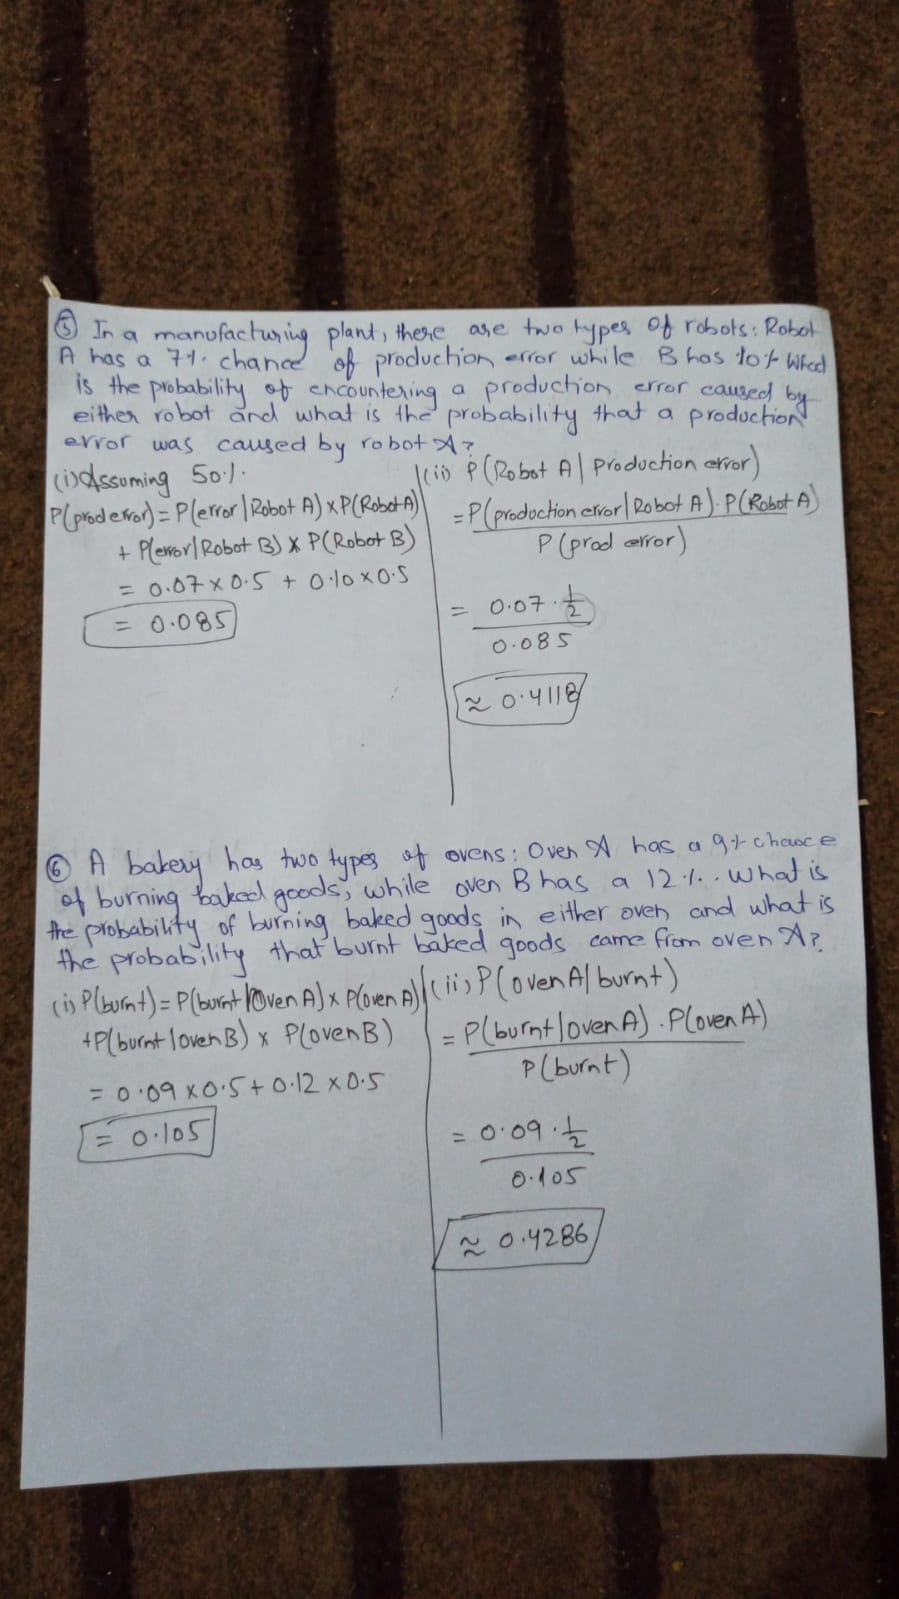 ⑤ In a manufacturing plant, there are two types of robots: Robot
A has a 7%. chance of production error while B has 10%
is the probability of encountering a production error caused by
either robot and what is the probability that a production
error was caused by robot A?
(i) Assuming 50%.
P(prod error) = P(error | Robot A) × P(Robot A)
+ P(error | Robot B) × P(Robot B)
= 0.07 × 0.5 + 0.10 × 0.5
= 0.085
(ii) P(Robot A | Production error)
= P(production error | Robot A) · P(Robot A)
P(prod error)
= 0.07 · 1/2
0.085
≈ 0.4118
⑥ A bakery has two types of ovens: Oven A has a 9% chance
of burning baked goods, while oven B has a 12%. What is
the probability of burning baked goods in either oven and what is
the probability that burnt baked goods came from oven A?
(i) P(burnt) = P(burnt | Oven A) × P(oven A)
+ P(burnt | oven B) × P(oven B)
= 0.09 × 0.5 + 0.12 × 0.5
= 0.105
(ii) P(oven A | burnt)
= P(burnt | oven A) · P(oven A)
P(burnt)
= 0.09 · 1/2
0.105
≈ 0.4286